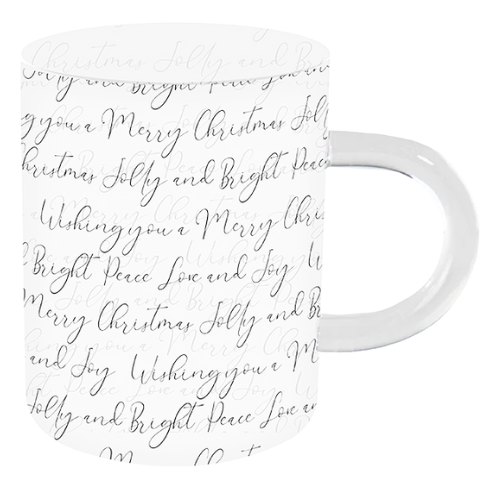 Jolly and Bright Peace Love and
g you a Merry Christmas Jol
hristmas Jolly and Bright Peace
Wishing you a Merry Chris
d Bright Peace Love and Joy W
Merry Christmas Jolly and B
and Joy Wishing you a M
Jolly and Bright Peace Love an